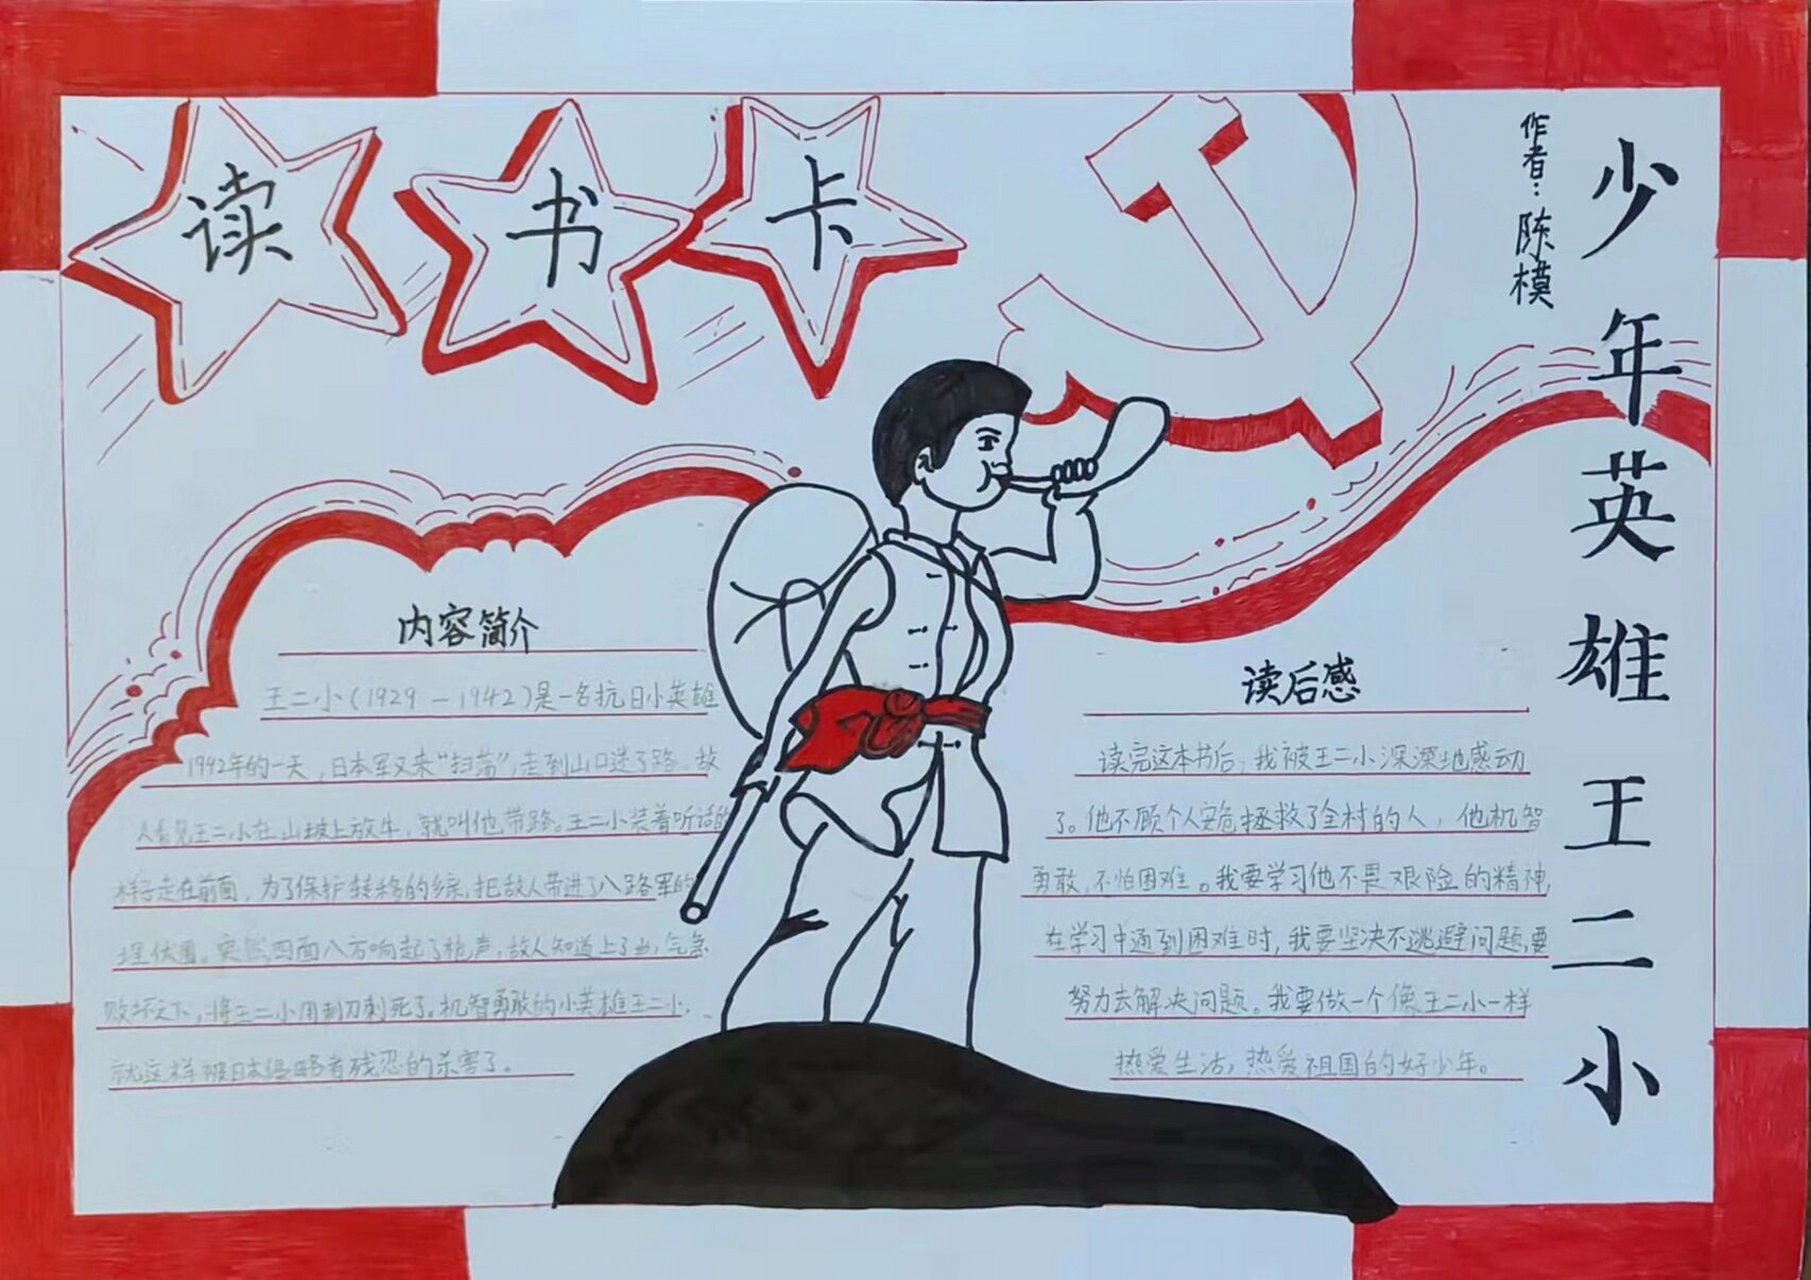 读书卡
少年英雄王二小
作者：陈模
内容简介
王二小（1929－1942）是一名抗日小英雄
1942年的一天，日本军又来“扫荡”，走到山口迷了路。敌
人看见王二小在山坡上放牛，就叫他带路。王二小装着听话的
样子走在前面，为了保护转移的乡亲，把敌人带进了八路军的
埋伏圈。突然，四面八方响起了枪声，敌人知道上了当，气急
败坏之下，将王二小用刺刀刺死了。机智勇敢的小英雄王二小，
就这样被日本侵略者残忍的杀害了。
读后感
读完这本书后，我被王二小深深地感动
了。他不顾个人安危拯救了全村的人，他机智
勇敢，不怕困难。我要学习他不畏艰险的精神，
在学习中遇到困难时，我要坚决不逃避问题，要
努力去解决问题。我要做一个像王二小一样
热爱生活，热爱祖国的好少年。